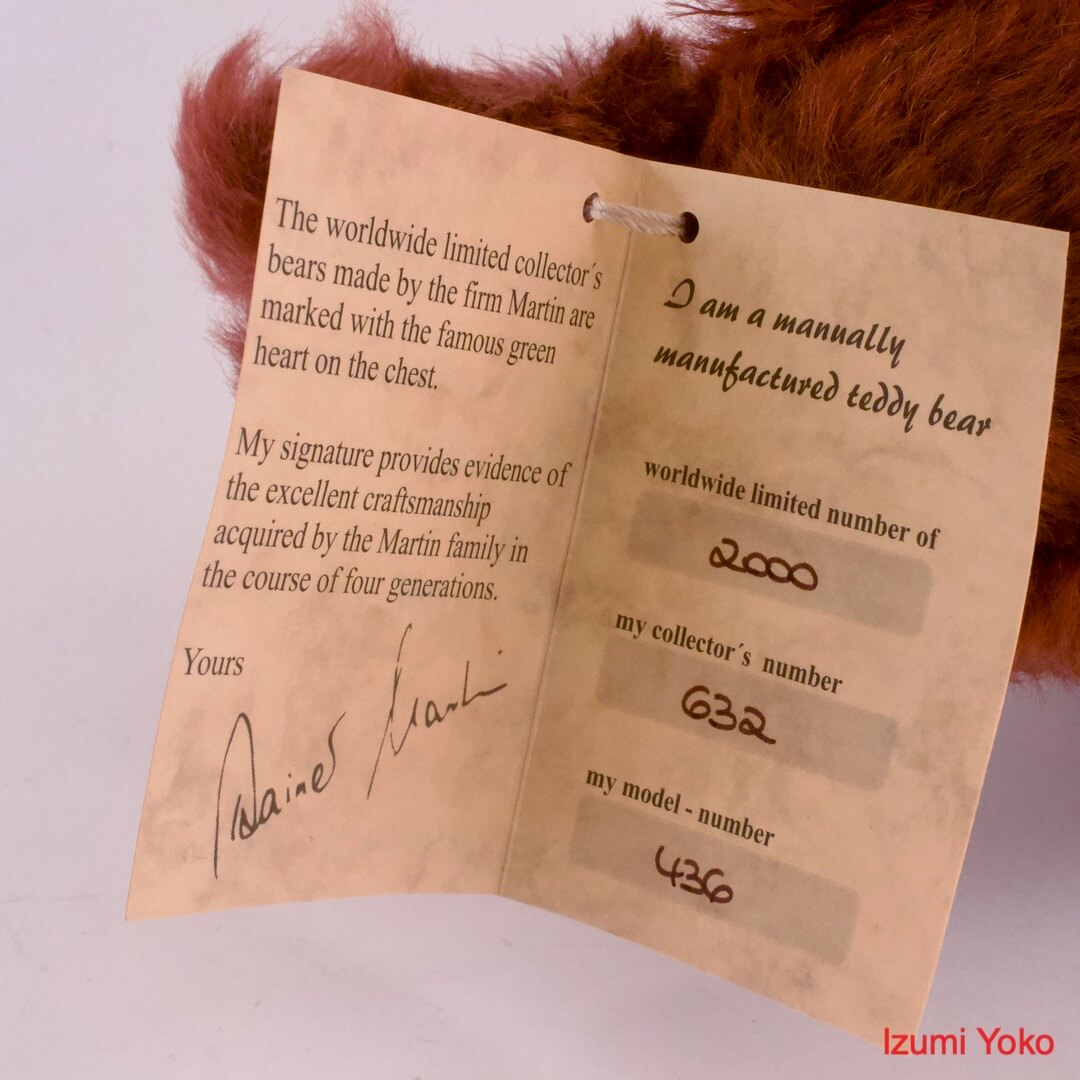 The worldwide limited collector´s
bears made by the firm Martin are
marked with the famous green
heart on the chest.
My signature provides evidence of
the excellent craftsmanship
acquired by the Martin family in
the course of four generations.
Yours
Rainer Martin
I am a manually
manufactured teddy bear
worldwide limited number of
2000
my collector´s number
632
my model - number
436
Izumi Yoko